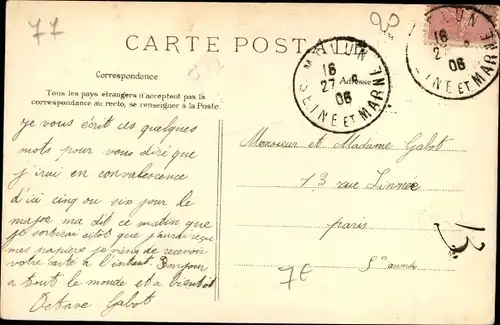 77
CARTE POSTALE
Correspondance
Tous les pays étrangers n'acceptent pas la
correspondance au recto, se renseigner à la Poste.
Adresse
MELUN
18
27 6
06
SEINE ET MARNE
MELUN
18
2 6
06
SEINE ET MARNE
Je vous écrit ces quelques
mots pour vous dire que
j'irai en convalescence
d'ici cinq ou six jour le
major ma dit ce matin que
je sortirai aitot que j'aurai reçue
mes papiers je viens de recevoir
votre carte a l'intant. Bonjour
a tout le monde et a bientôt
Octave Gabot
Monsieur et Madame Gabot
13 rue Linnée
paris
5e
7€